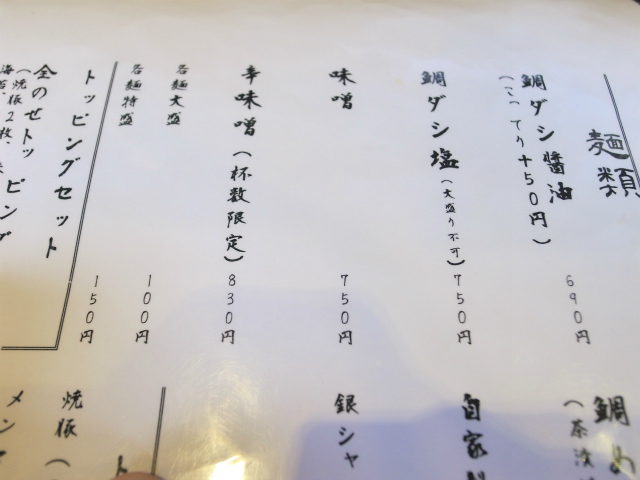 麺類
鯛ダシ醤油 690円
(こってり+50円)
鯛ダシ塩(大盛り不可) 750円
味噌 750円
辛味噌(杯数限定) 830円
各麺大盛 100円
各麺特盛 150円
トッピングセット
全のせトッピング
(焼豚2枚、
海苔
鯛め
(茶漬
自家
銀シャ
ト
焼豚(
メン